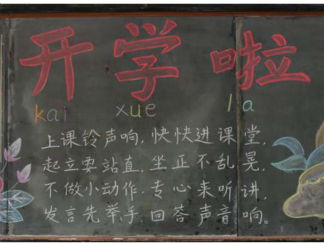 开学啦
kai xue la
上课铃声响，快快进课堂，
起立要站直，坐正不乱晃，
不做小动作，专心来听讲，
发言先举手，回答声音响。